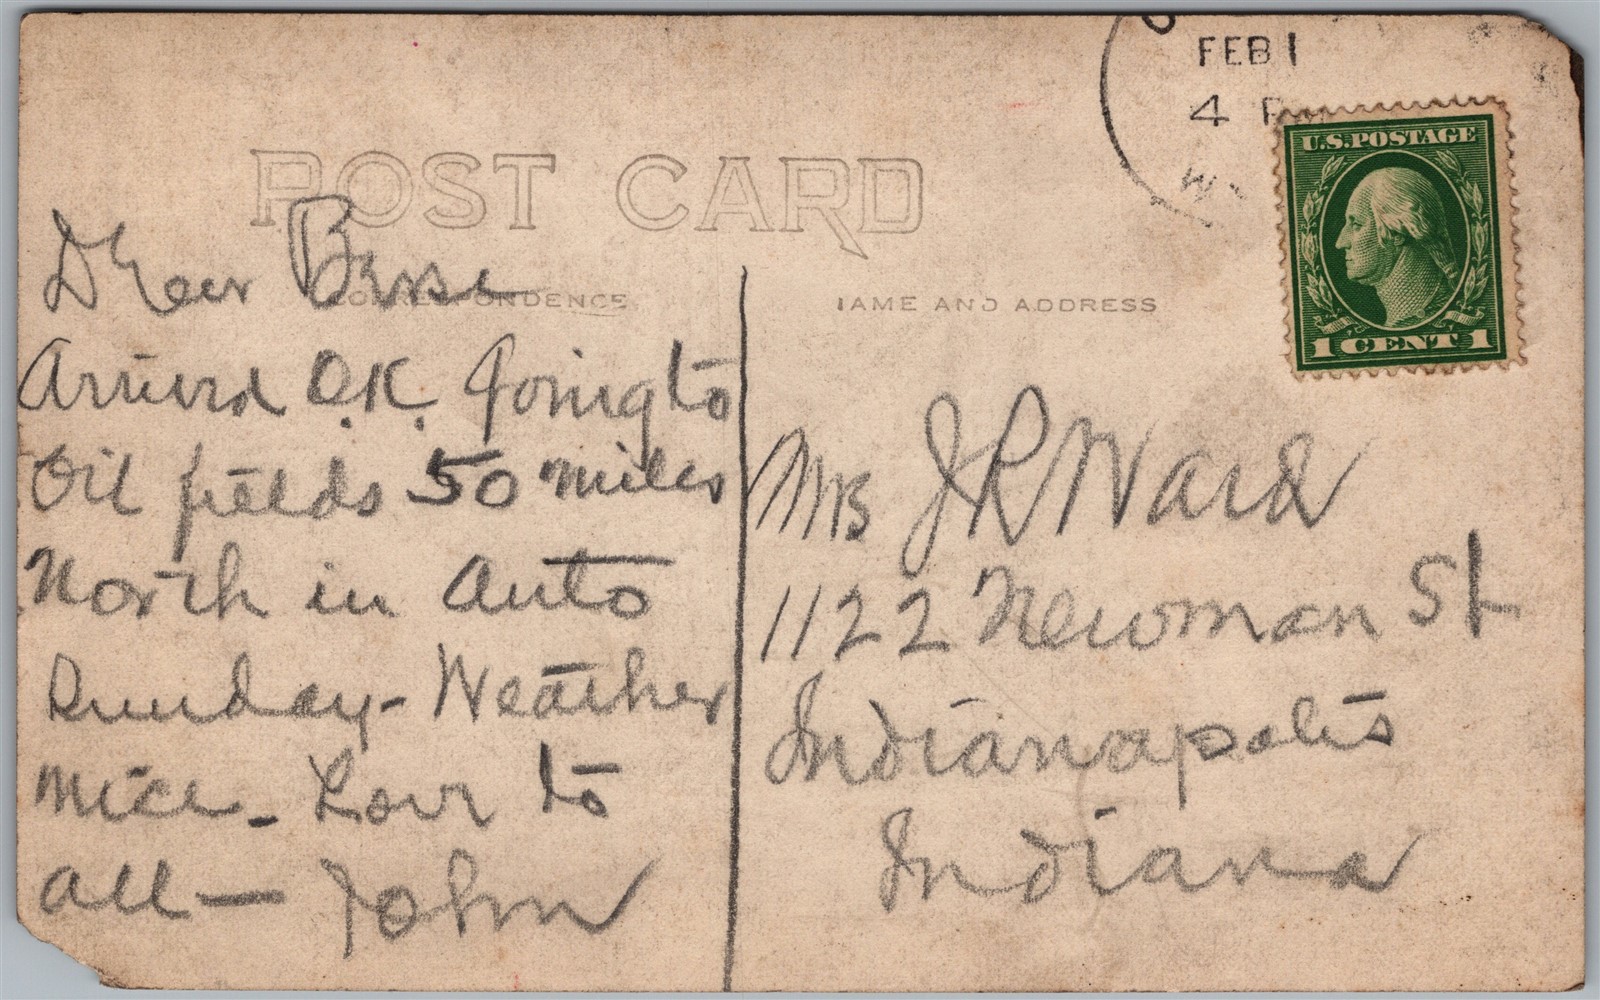 POST CARD
CORRESPONDENCE
Dear Bess
Arrived O.K. Going to
Oil fields 50 miles
North in Auto
Sunday - Weather
Nice - Love to
all — John
FEB 1
4 P
W
U.S. POSTAGE
1 CENT 1
NAME AND ADDRESS
Mrs J R Ward
1122 Newman St
Indianapolis
Indiana